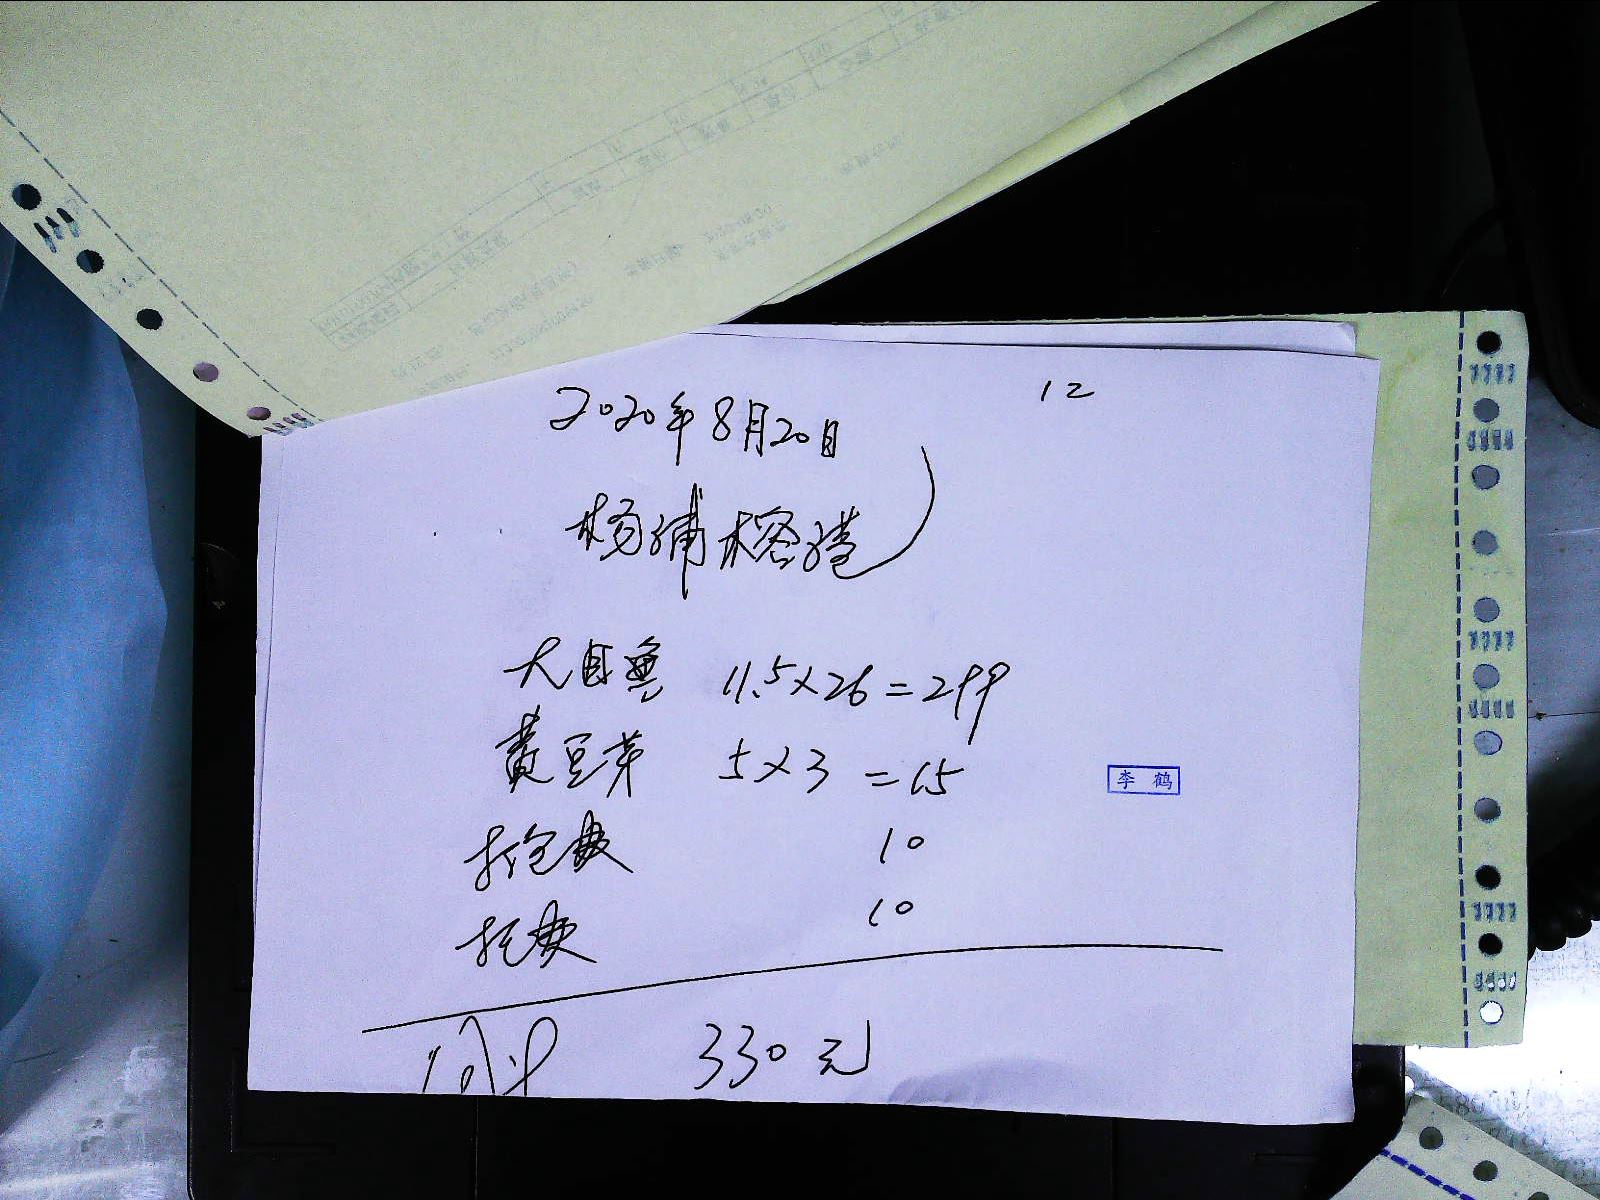 12
2020年8月20日
杨浦榕港
大目鱼 11.5×26=299
黄豆芽 5×3 =15
李鹤
打包费 10
打费 10
330元